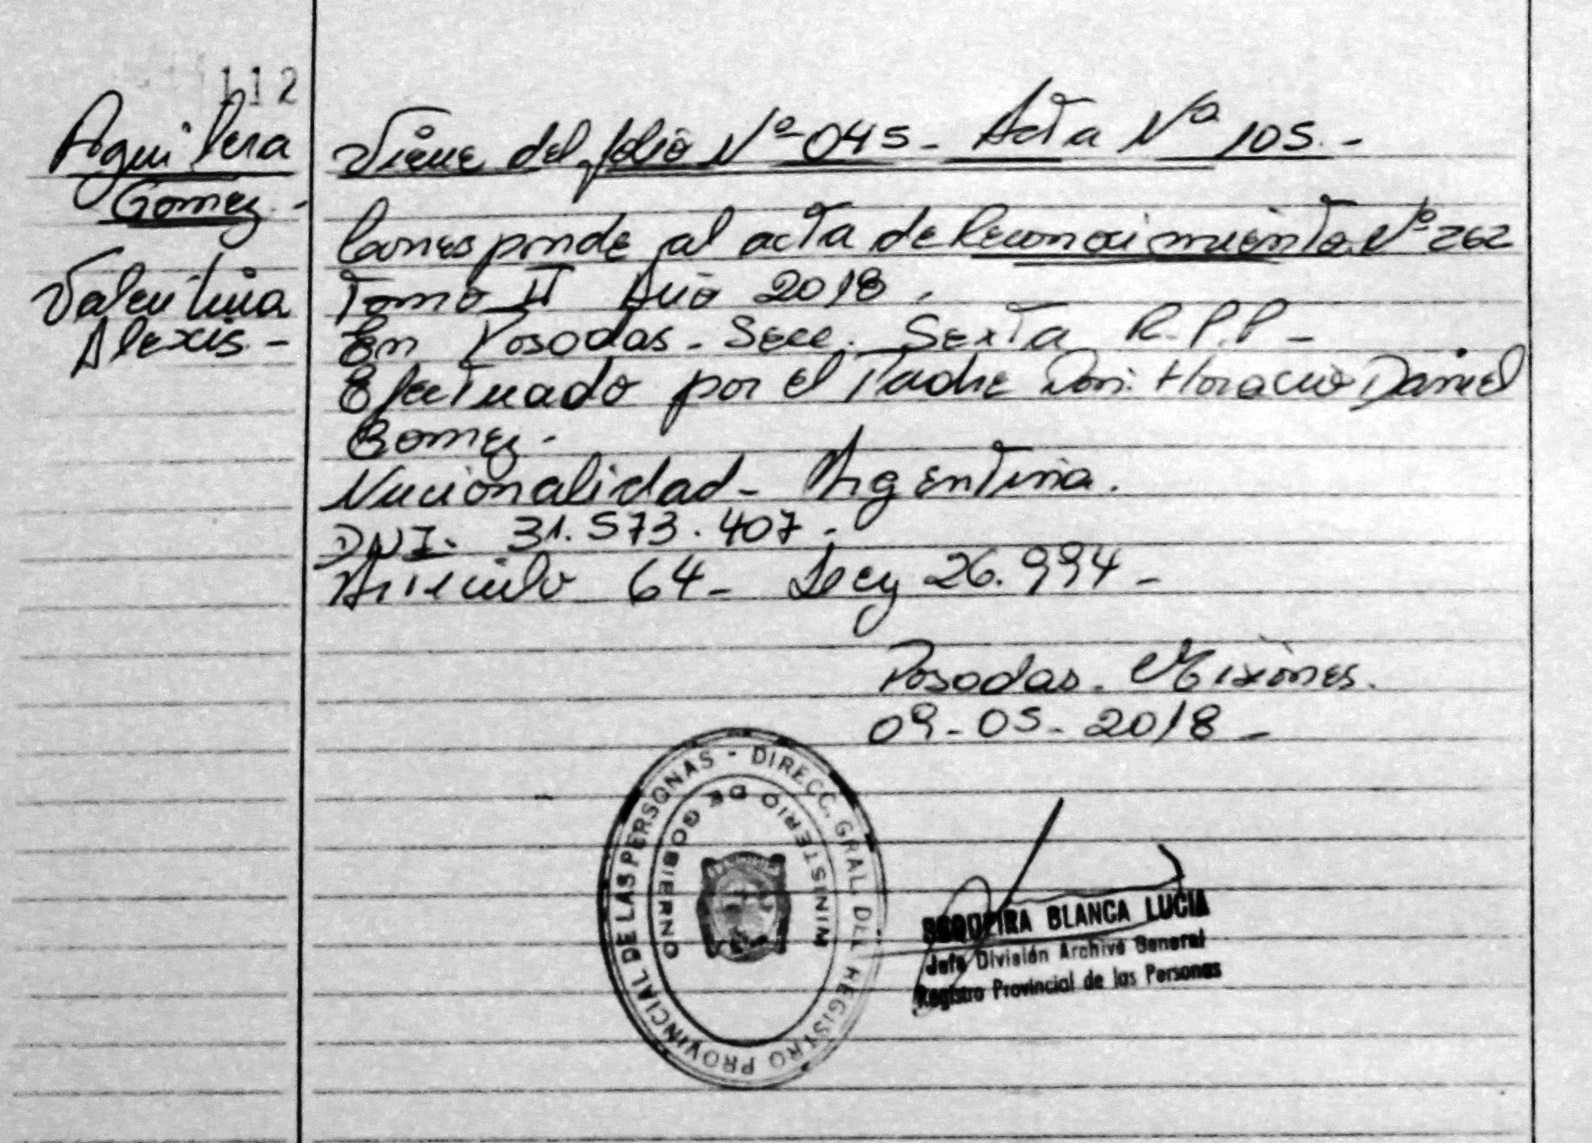 112
Aguilera
Gomez.-
Valentina
Alexis.-
Viene del folio Nº 045- Acta Nº 105.-
Corresponde al acta de Reconocimiento Nº 262
Tomo II Año 2018.
En Posadas- Secc. Sexta R.P.P-
Efectuado por el Padre Don: Horacio Daniel
Gomez.-
Nacionalidad- Argentina.
DNI- 31.573.407.-
Articulo 64- Ley 26.994-
Posadas- Misiones.
09-05-2018-
DIRECC. GRAL. DEL REGISTRO PROVINCIAL DE LAS PERSONAS -
MINISTERIO DE GOBIERNO
SEQUEIRA BLANCA LUCIA
Jefe División Archivo General
Registro Provincial de las Personas